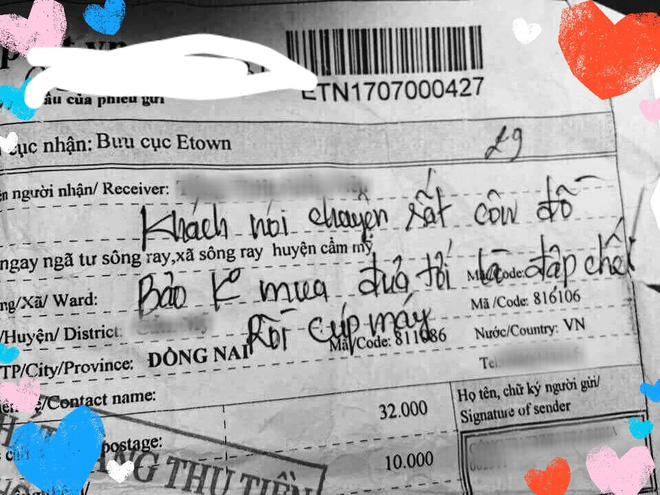 ETN1707000427
ầu của phiếu gửi
cục nhận: Bưu cục Etown
29
ên người nhận/ Receiver:
Khách nói chuyện rất côn đồ
ngay ngã tư sông ray,xã sông ray huyện cẩm mỹ
Bảo K mua đưa tới là đập chết
ng/Xã/ Ward:
Mã/Code: 816106
Rồi cúp máy
/Huyện/ District:
Mã/Code: 811086
TP/City/Province: ĐỒNG NAI
Nước/Country: VN
Te
/Contact name:
Họ tên, chữ ký người gửi/
Signature of sender
32.000
postage:
10.000
NG THU TIỀN